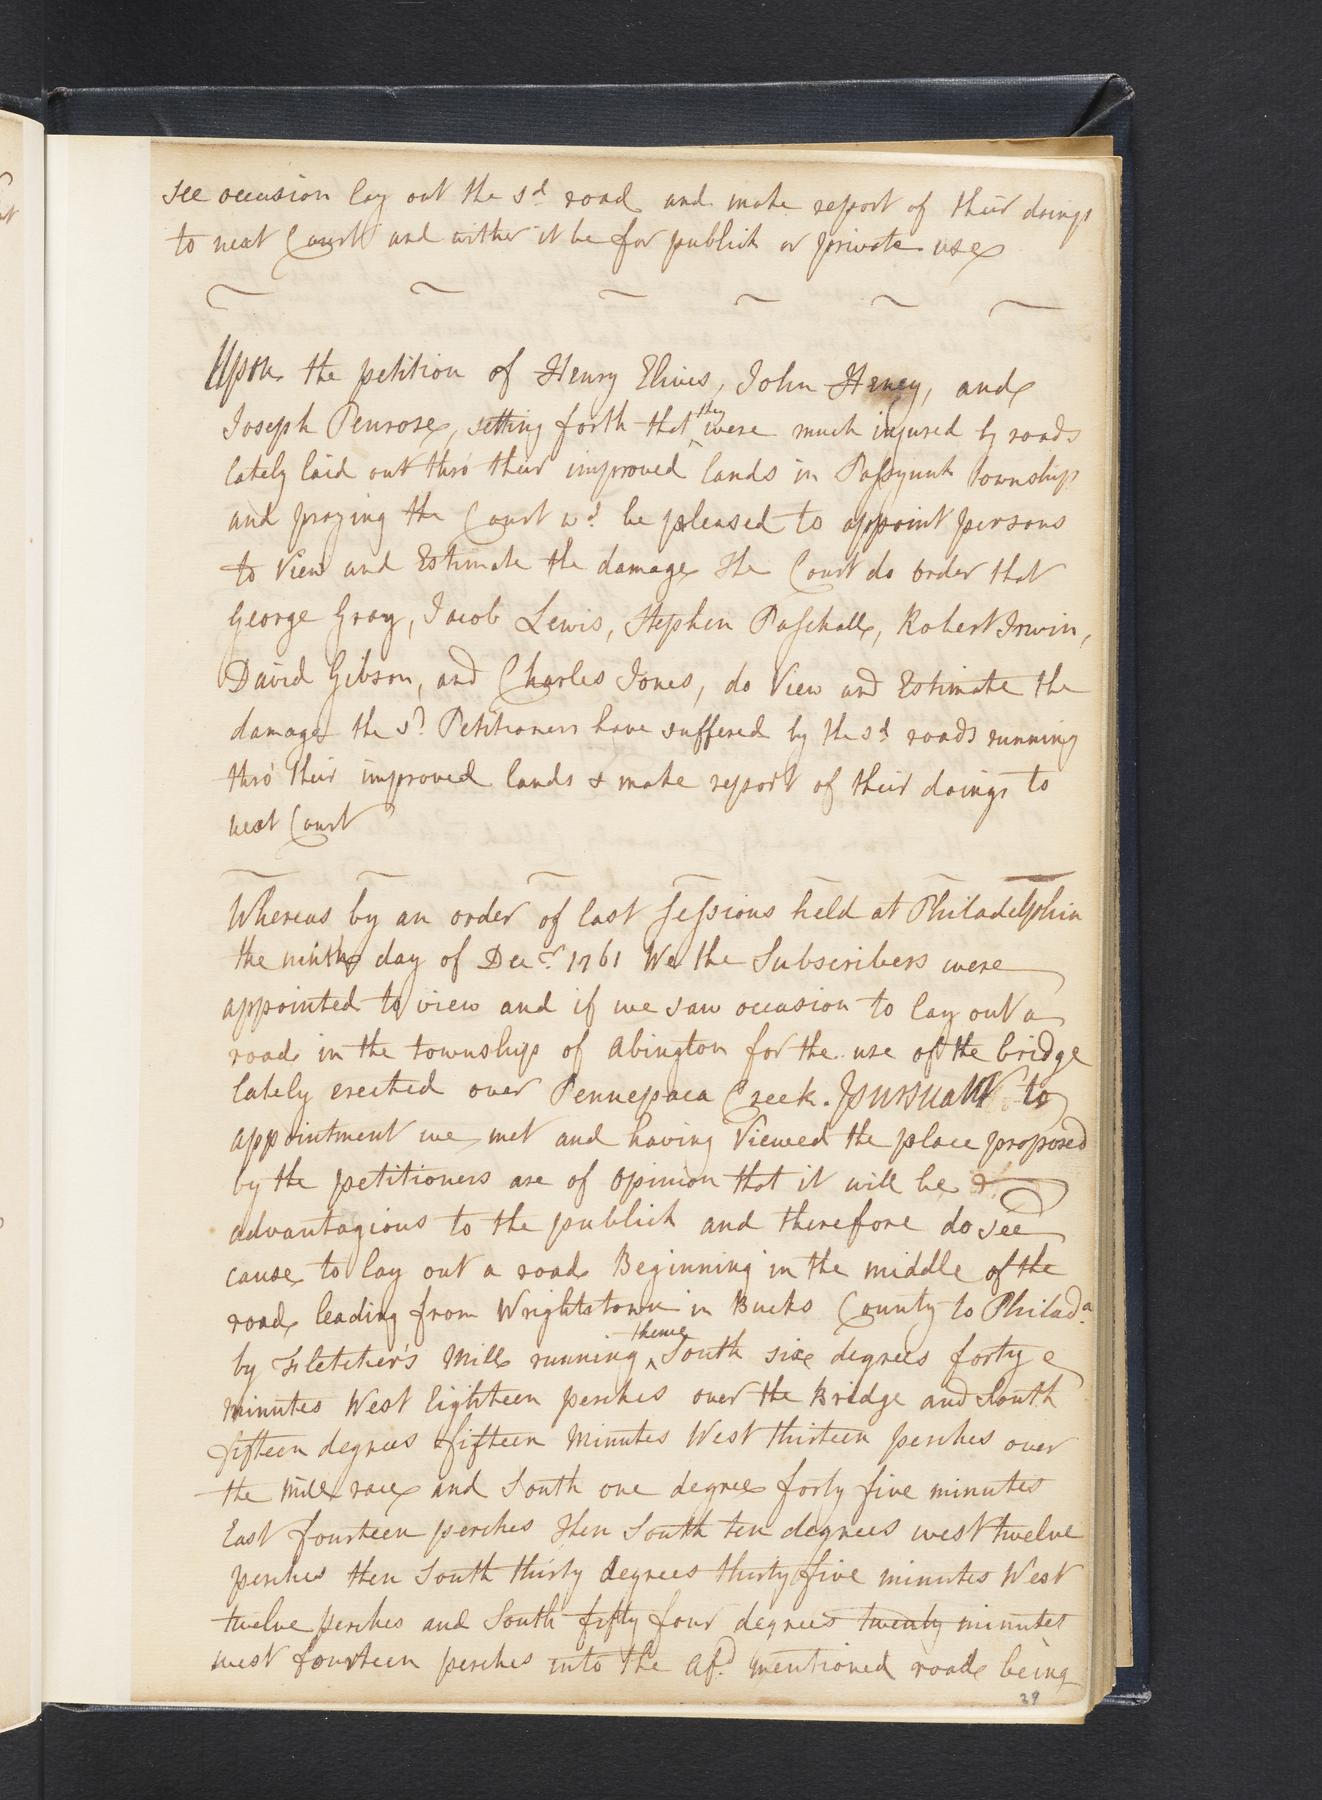 see occasion lay out the sd road and make report of their doings
to next Court and wither it be for publick or private use
Upon the petition of Henry Elwes, John Heney, and
Joseph Penrose, setting forth that they were much injured by roads
lately laid out thro' their improved lands in Passyunk Township
and praying the Court wd be pleased to appoint persons
to View and Estimate the damage The Court do order that
George Gray, Jacob Lewis, Stephen Paschall, Robert Irwin,
David Gibson, and Charles Jones, do View and Estimate the
damage the sd Petitioners have suffered by the sd roads running
thro' their improved lands & make report of their doings to
next Court
Whereas by an order of last Sessions held at Philadelphia
the ninth day of Decr 1761 We the Subscribers were
appointed to view and if we saw occasion to lay out a
road in the township of Abington for the use of the bridge
lately erected over Pennepaca Creek. Pursuant to
appointment we met and having Viewed the place proposed
by the petitioners are of Opinion that it will be
advantagious to the publick and therefore do see
cause to lay out a road Beginning in the middle of the
road leading from Wrightstown in Bucks County to Philada.
by Fletcher's Mill running thence South six degrees forty
minutes West Eighteen perches over the Bridge and South
fifteen degrees fifteen Minutes West thirteen perches over
the Mill race and South one degree forty five minutes
East fourteen perches then South ten degrees west twelve
perches then South thirty degrees thirty five minutes West
twelve perches and South fifty four degrees twenty minutes
west fourteen perches into the afd. mentioned road being
29